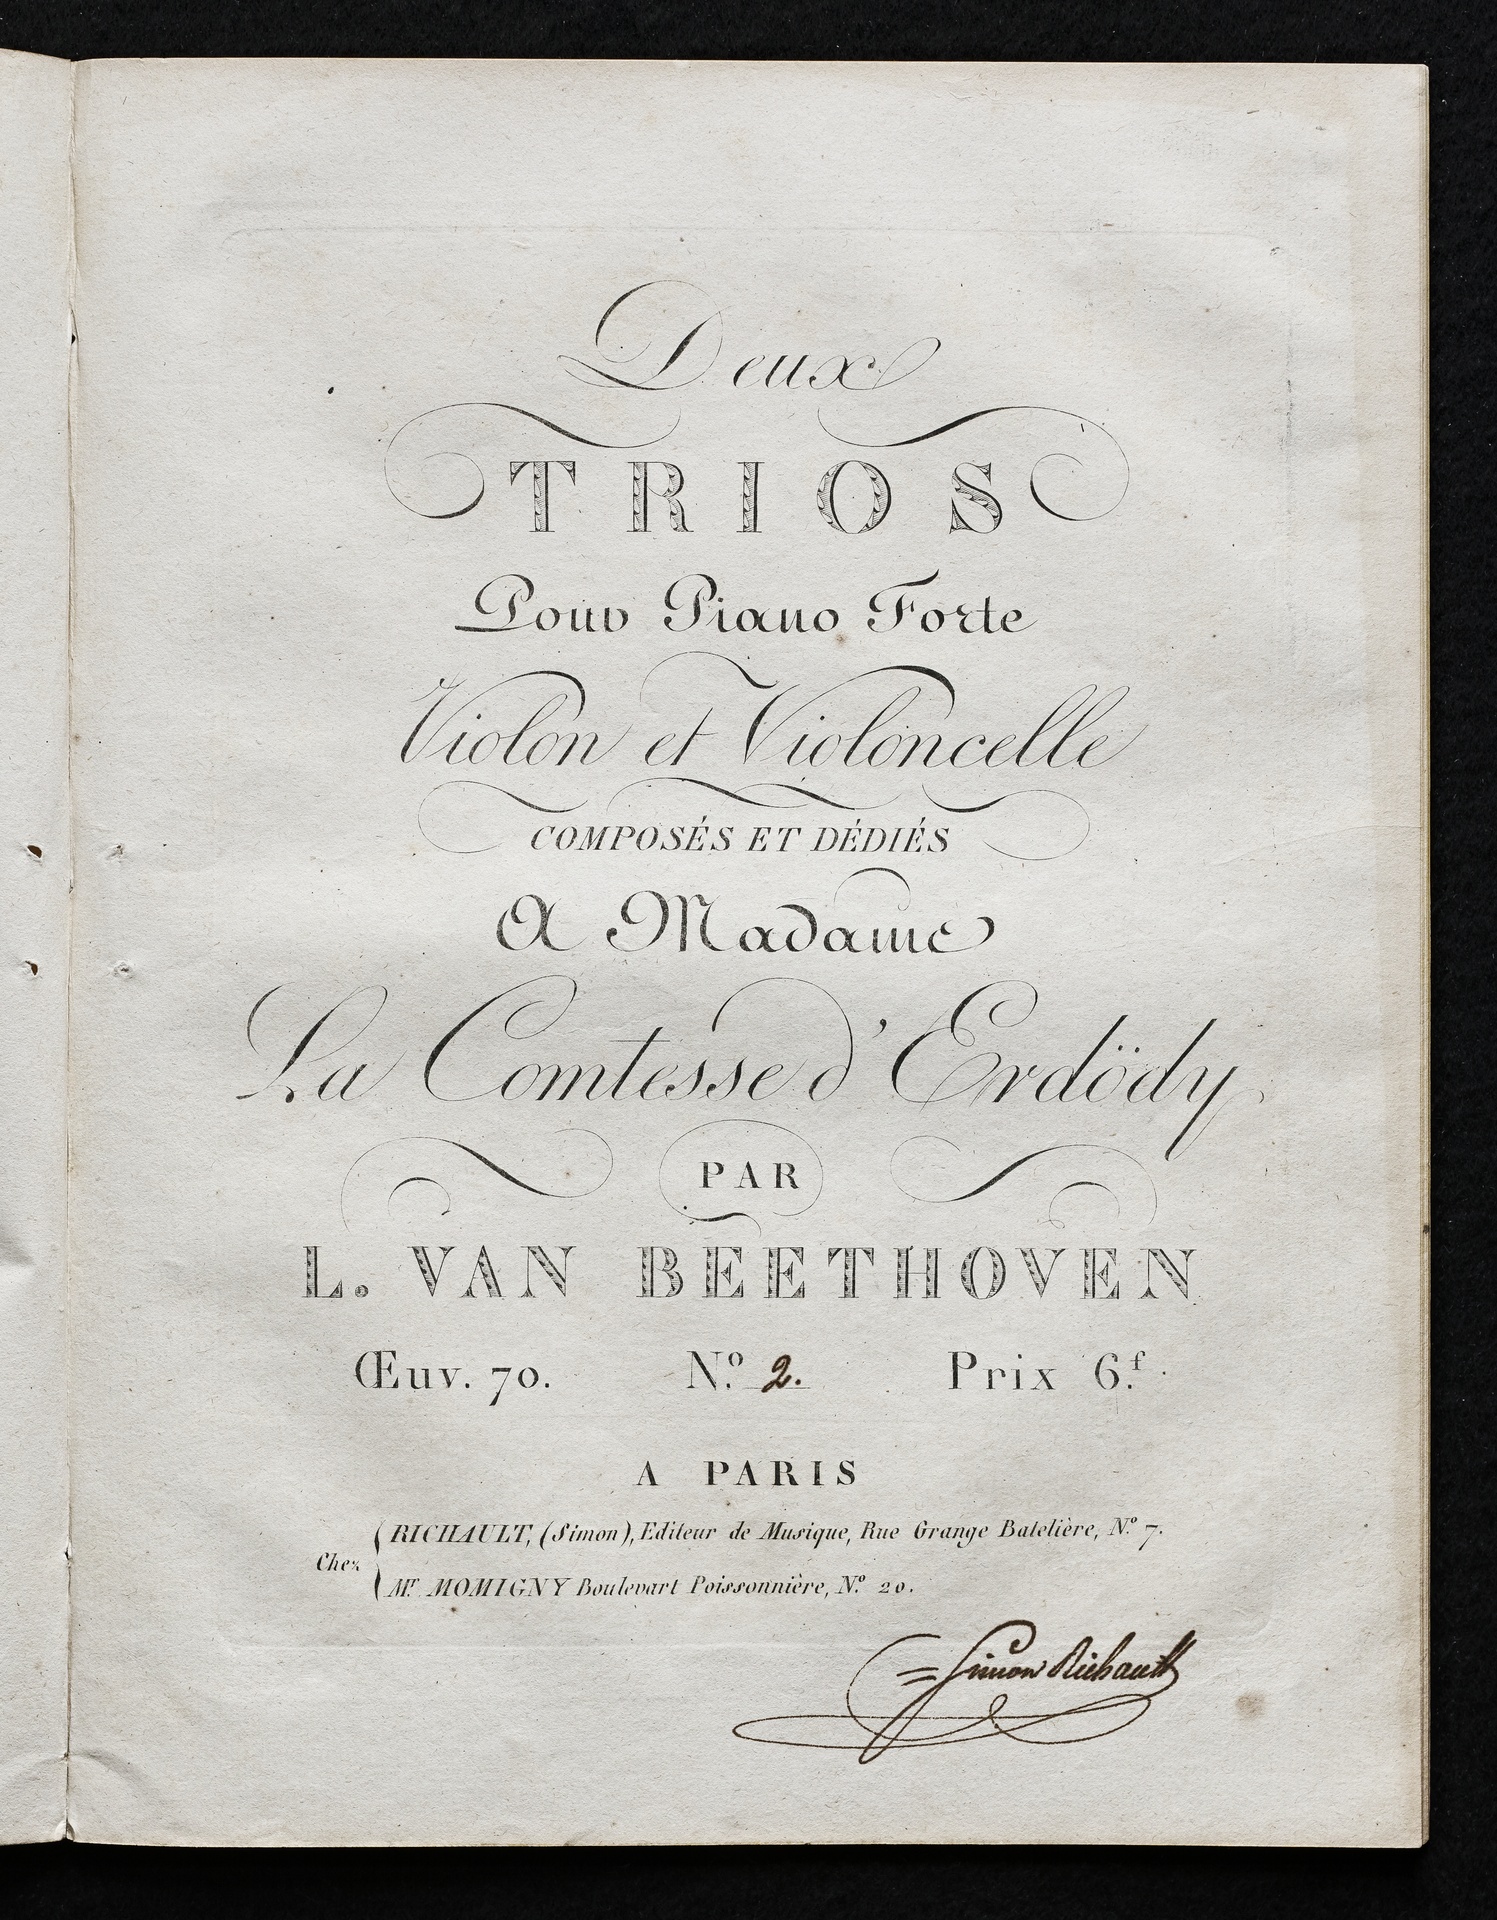 Deux
TRIOS
Pour Piano Forte
Violon et Violoncelle
COMPOSÉS ET DÉDIÉS
A Madame
La Comtesse d'Erdödy
PAR
L. VAN BEETHOVEN
Œuv. 70. N.º 2. Prix 6.f
A PARIS
Chez
RICHAULT, (Simon), Editeur de Musique, Rue Grange Batelière, N.º 7.
Mr. MOMIGNY Boulevart Poissonnière, N.º 20.
Simon Richault